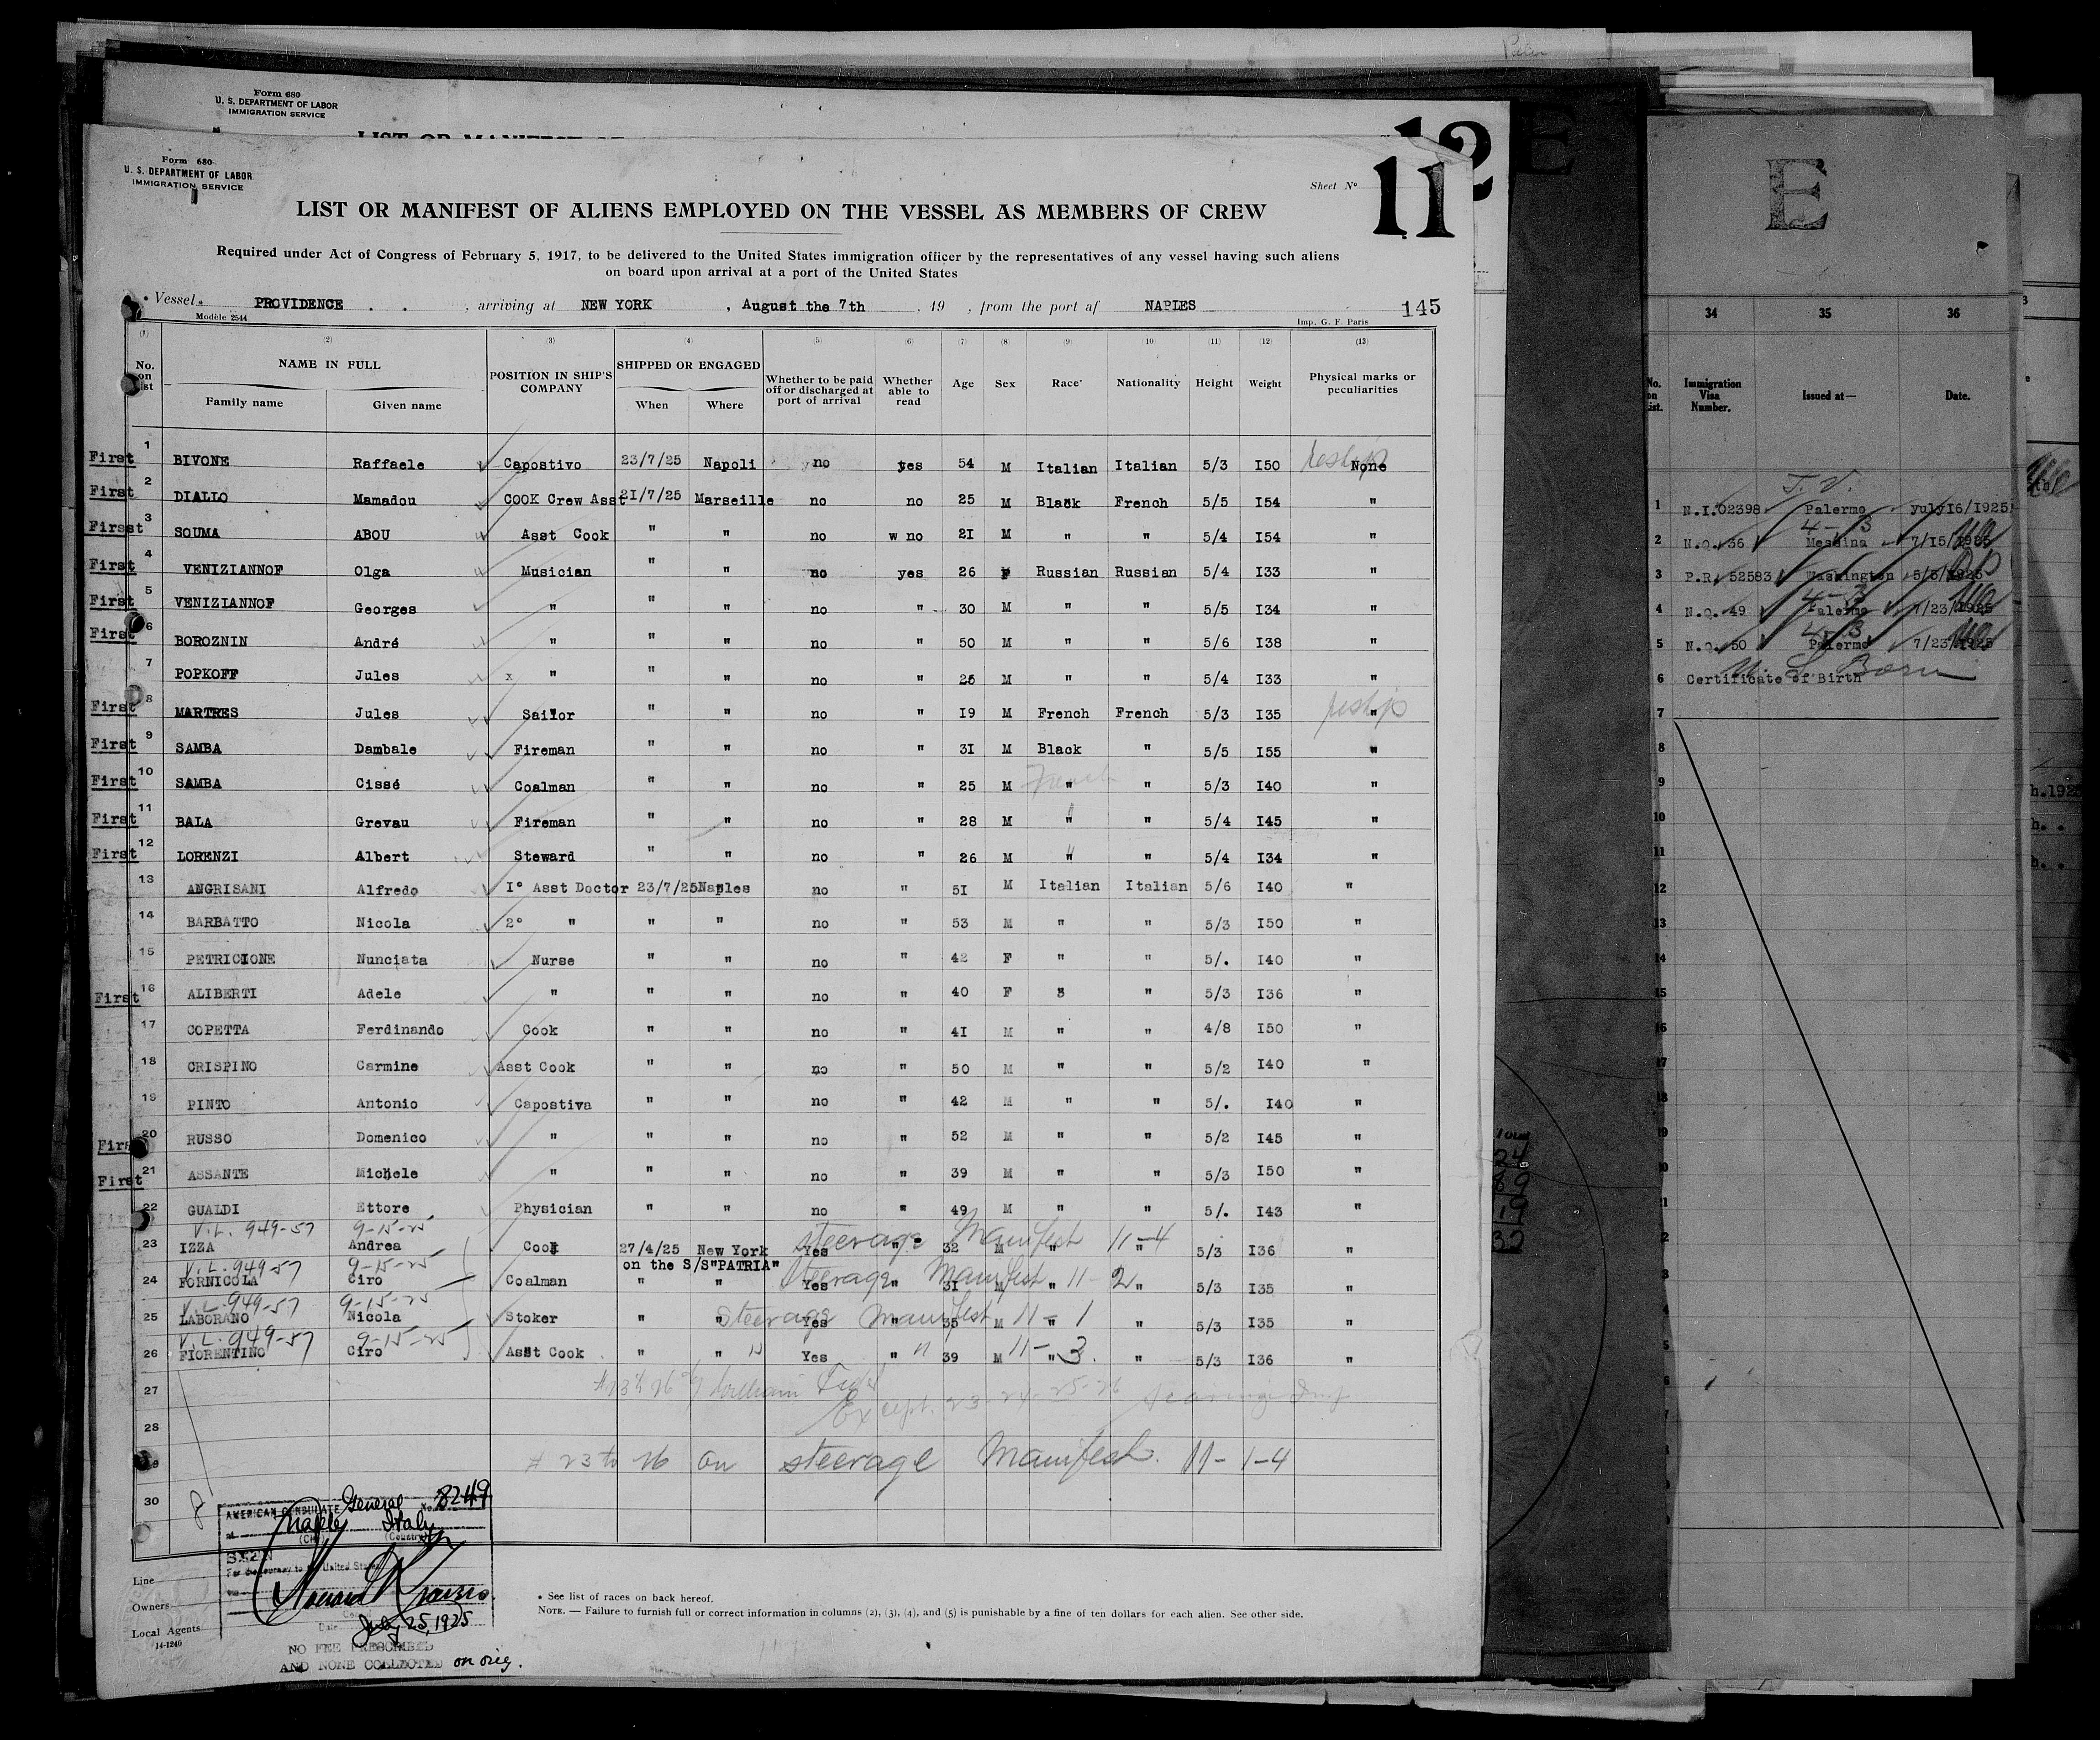 Form 680
U. S. DEPARTMENT OF LABOR
IMMIGRATION SERVICE
12
Form 680
U. S. DEPARTMENT OF LABOR
IMMIGRATION SERVICE
Sheet No 11
LIST OR MANIFEST OF ALIENS EMPLOYED ON THE VESSEL AS MEMBERS OF CREW
Required under Act of Congress of February 5, 1917, to be delivered to the United States immigration officer by the representatives of any vessel having such aliens
on board upon arrival at a port of the United States
Vessel PROVIDENCE . . , arriving at NEW YORK , August the 7th , 19 , from the port af NAPLES 145
Modèle 2544 Imp. G. F. Paris
(1) (2) (3) (4) (5) (6) (7) (8) (9) (10) (11) (12) (13)
No. on list NAME IN FULL Family name Given name POSITION IN SHIP'S COMPANY SHIPPED OR ENGAGED When Where Whether to be paid off or discharged at port of arrival Whether able to read Age Sex Race* Nationality Height Weight Physical marks or peculiarities
First 1 BIVONE Raffaele Capostivo 23/7/25 Napoli no yes 54 M Italian Italian 5/3 I50 None
First 2 DIALLO Mamadou COOK Crew Asst 2I/7/25 Marseille no no 25 M Black French 5/5 I54 "
Firsst 3 SOUMA ABOU Asst Cook " " no w no 2I M " " 5/4 I54 "
First 4 VENIZIANNOF Olga Musician " " no yes 26 F Russian Russian 5/4 I33 "
First 5 VENIZIANNOF Georges " " " no " 30 M " " 5/5 I34 "
First 6 BOROZNIN André " " " no " 50 M " " 5/6 I38 "
7 POPKOFF Jules x " " " no " 25 M " " 5/4 I33 "
First 8 MARTRES Jules Sailor " " no " I9 M French French 5/3 I35 "
First 9 SAMBA Dambale Fireman " " no " 3I M Black " 5/5 I55 "
First 10 SAMBA Cissé Coalman " " no " 25 M French " " 5/3 I40 "
First 11 BALA Grevau Fireman " " no " 28 M " " 5/4 I45 "
First 12 LORENZI Albert Steward " " no " 26 M " " 5/4 I34 "
13 ANGRISANI Alfredo I° Asst Doctor 23/7/25 Naples no " 5I M Italian Italian 5/6 I40 "
14 BARBATTO Nicola 2° " " " no " 53 M " " 5/3 I50 "
15 PETRICIONE Nunciata Nurse " " no " 42 F " " 5/. I40 "
First 16 ALIBERTI Adele " " " no " 40 F 3 " 5/3 I36 "
17 COPETTA Ferdinando Cook " " no " 4I M " " 4/8 I50 "
18 CRISPINO Carmine Asst Cook " " no " 50 M " " 5/2 I40 "
19 PINTO Antonio Capostiva " " no " 42 M " " 5/. I40 "
First 20 RUSSO Domenico " " " no " 52 M " " 5/2 I45 "
First 21 ASSANTE Michele " " " no " 39 M " " 5/3 I50 "
22 GUALDI Ettore Physician " " no " 49 M " " 5/. I43 "
V.L. 949-57 9-15-25 steerage Manifest 11-4
23 IZZA Andrea Cook 27/4/25 New York Yes " 32 M " " 5/3 I36 "
on the S/S"PATRIA"
V.L. 949-57 9-15-25 steerage Manifest 11-2
24 FORNICOLA Ciro Coalman " " Yes " 3I M " " 5/3 I35 "
V.L. 949-57 9-15-25 steerage Manifest 11-1
25 LABORANO Nicola Stoker " " Yes " 35 M " " 5/3 I35 "
V.L. 949-57 9-15-25 " " 11-3.
26 FIORENTINO Ciro Asst Cook " " Yes " 39 M " " 5/3 I36 "
27
Except. 23-24-25-26
28
29 # 23 to 26 on steerage Manifest. 11-1-4
30
AMERICAN CONSULATE General No. 8249
at Naples Italy
(City) (Country)
SEEN
For the journey to the United States
Date July 25, 1925
NO FEE PRESCRIBED
AND NONE COLLECTED on orig.
Line
Owners
Local Agents
14-1240
* See list of races on back hereof.
NOTE. — Failure to furnish full or correct information in columns (2), (3), (4), and (5) is punishable by a fine of ten dollars for each alien. See other side.
E
34 35 36
No. on List. Immigration Visa Number. Issued at— Date.
1 N.I.02398 Palermo yuly I6/1925
2 N.Q. 36 Messina 7/15/1925
3 P.R. 52583 Washington 5/5/1925
4 N.Q. 49 Palermo 7/23/1925
5 N.Q. 50 Palermo 7/23/1925
U. S. Born
6 Certificate of Birth
7
8
9
10
11
12
13
14
15
16
17
18